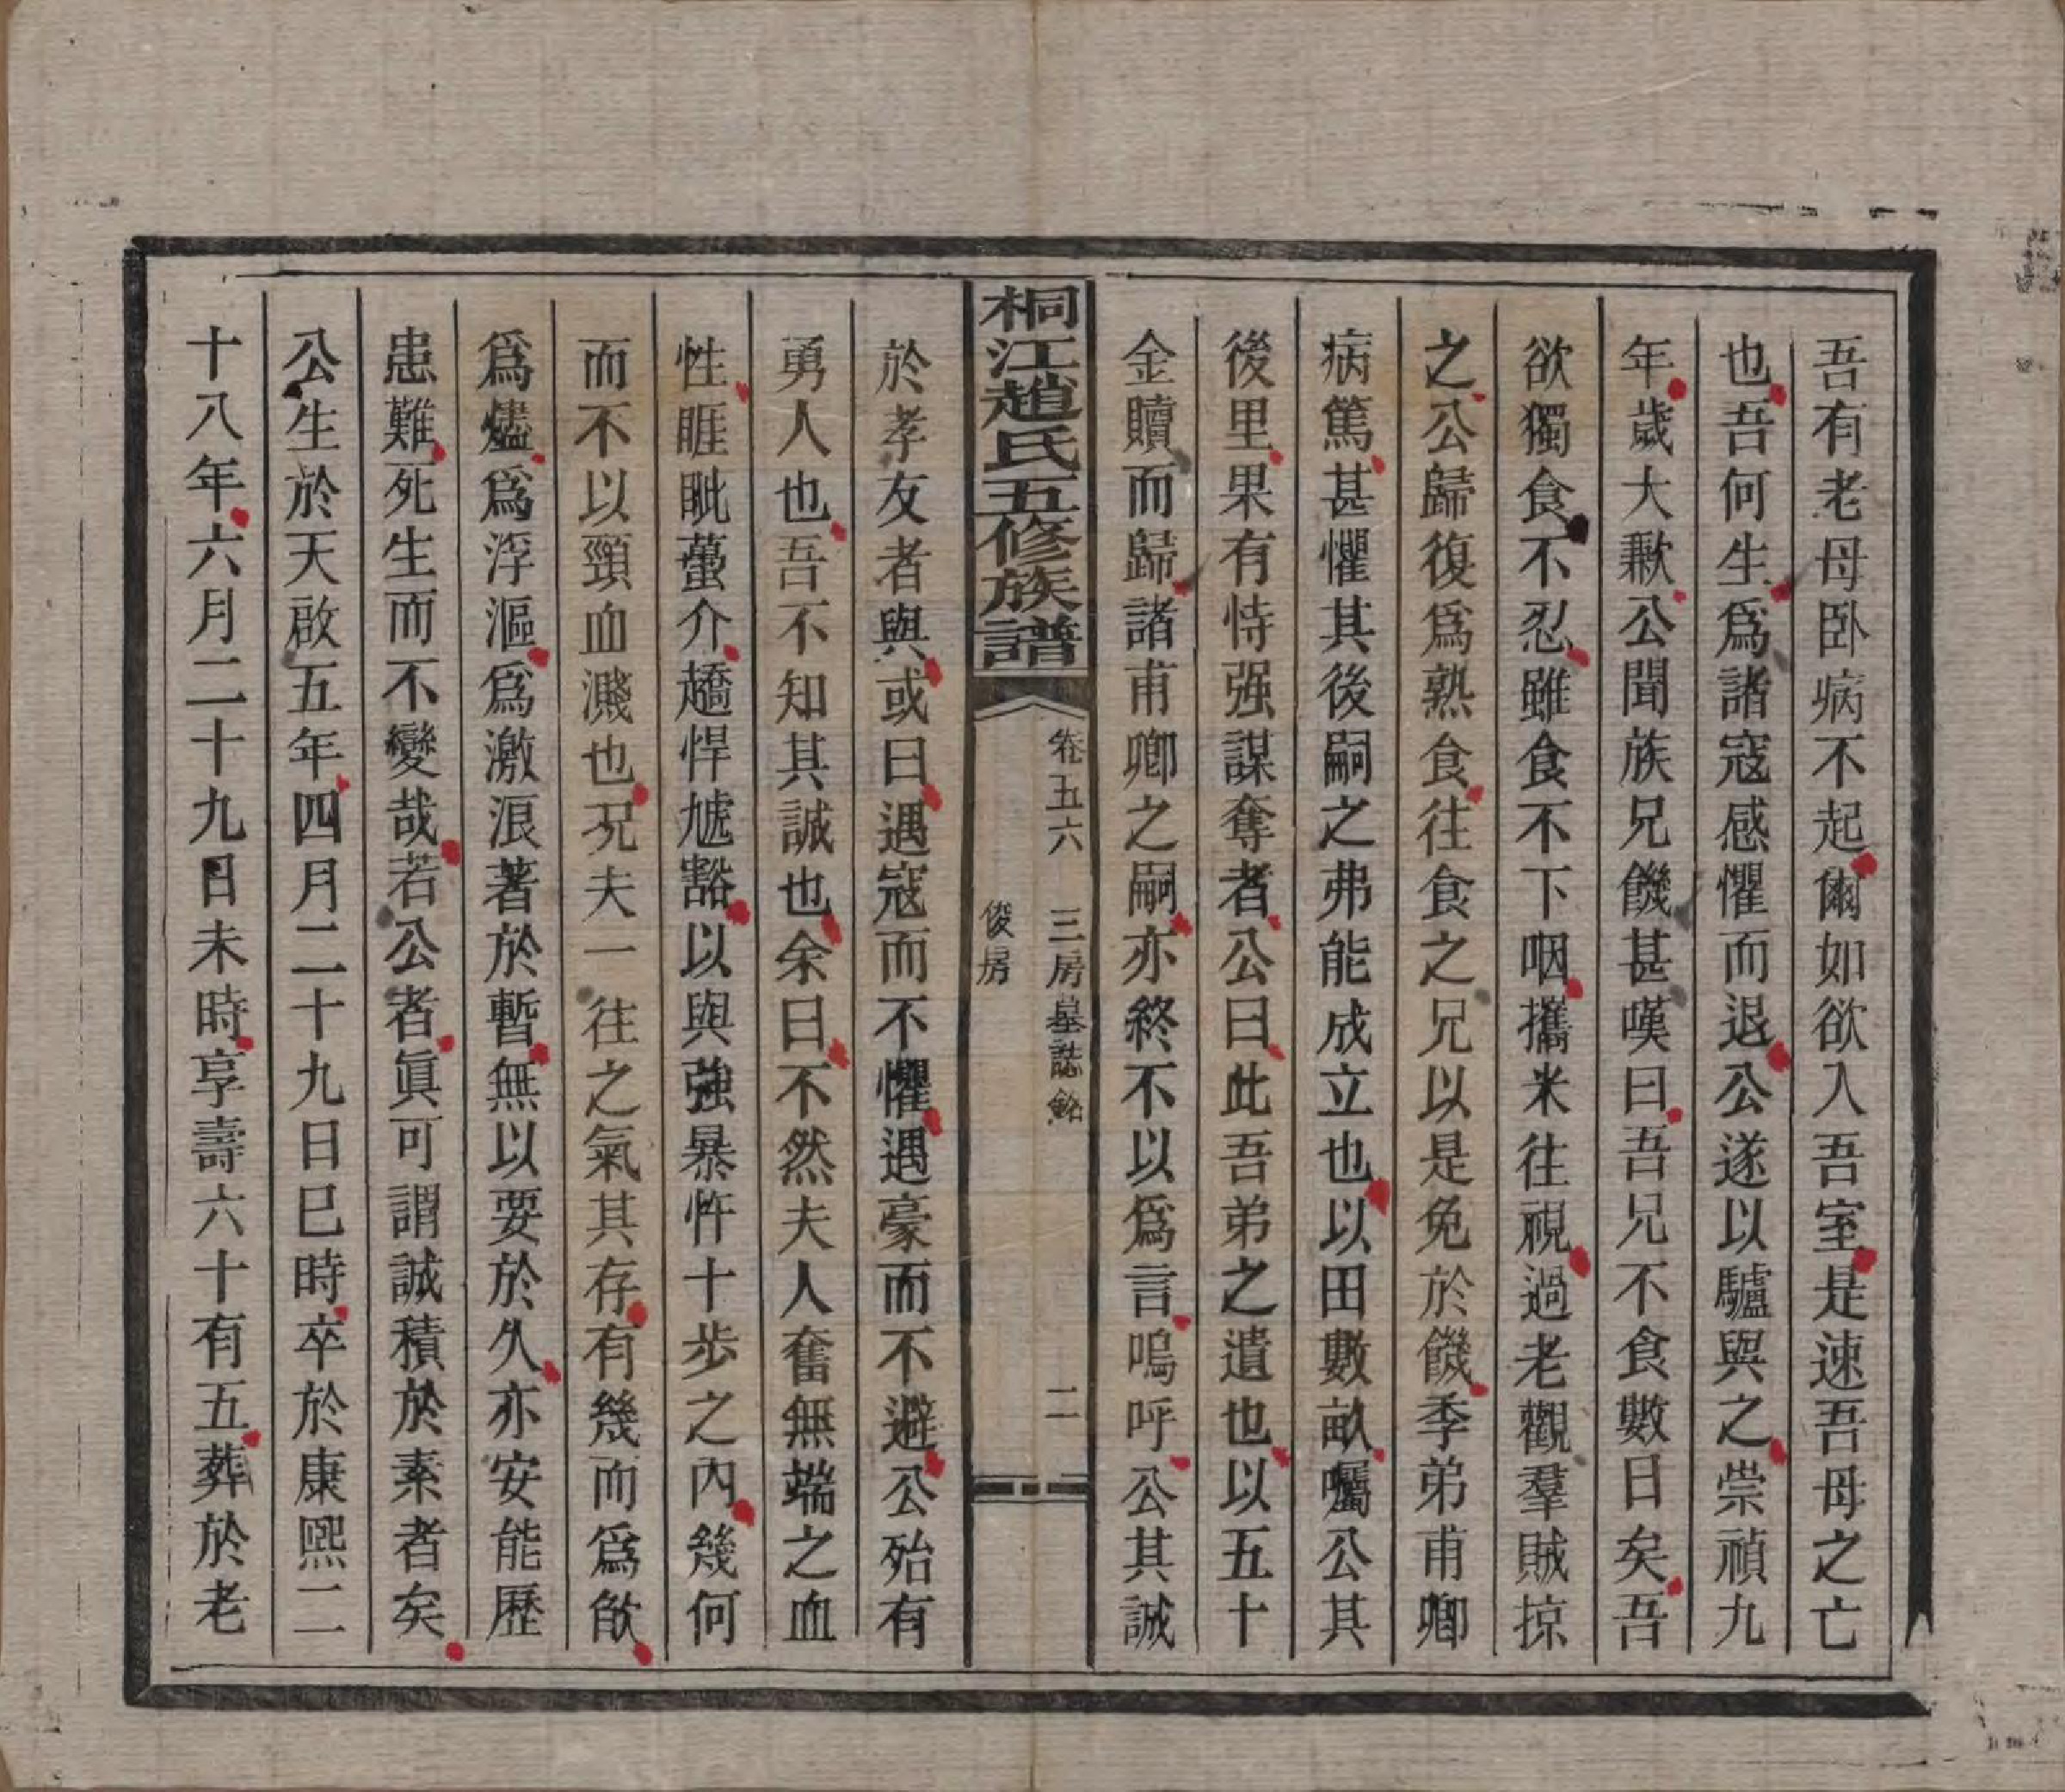 吾有老母卧病不起爾如欲入吾室是速吾母之亡
也吾何生爲諸寇感懼而退公遂以驢與之崇禎九
年歲大歉公聞族兄饑甚嘆曰吾兄不食數日矣吾
欲獨食不忍雖食不下咽攜米往視過老觀羣賊掠
之公歸復爲熟食往食之兄以是免於饑季弟甫卿
病篤甚懼其後嗣之弗能成立也以田數畝囑公其
後里果有恃强謀奪者公曰此吾弟之遺也以五十
金贖而歸諸甫卿之嗣亦終不以爲言嗚呼公其誠
桐江趙氏五修族譜
卷五六 三房墓誌銘 二
俊房
於孝友者與或曰遇寇而不懼遇豪而不避公殆有
勇人也吾不知其誠也余曰不然夫人奮無端之血
性睚眦蠆介趫悍虓豁以與強暴忤十步之內幾何
而不以頸血濺也况夫一往之氣其存有幾而爲欿
爲燼爲浮漚爲激浪著於暫無以要於久亦安能歷
患難死生而不變哉若公者眞可謂誠積於素者矣
公生於天啟五年四月二十九日巳時卒於康熙二
十八年六月二十九日未時享壽六十有五葬於老